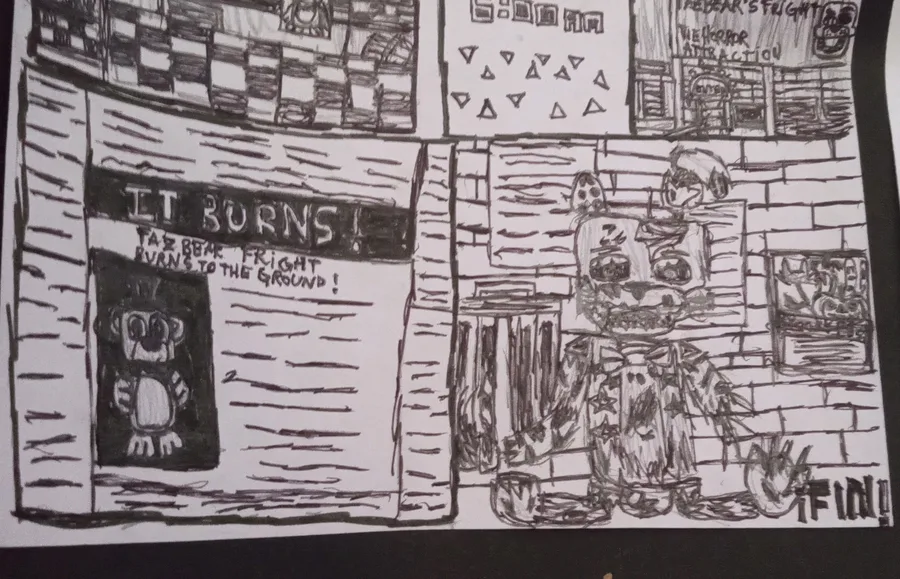 6:00 AM
FAZBEAR'S FRIGHT
THE HORROR
ATTRACTION
ENTER
IT BURNS!
FAZ BEAR FRIGHT
BURNS TO THE GROUND!
¡FIN!